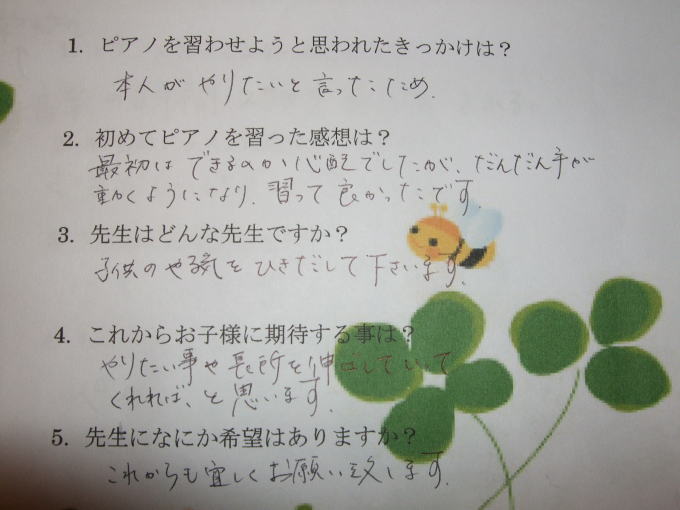 1. ピアノを習わせようと思われたきっかけは？
本人がやりたいと言ったため.
2. 初めてピアノを習った感想は？
最初はできるのか心配でしたが、だんだん手が
動くようになり、習って良かったです.
3. 先生はどんな先生ですか？
子供のやる気をひきだして下さいます.
4. これからお子様に期待する事は？
やりたい事や長所を伸ばしていって
くれれば、と思います.
5. 先生になにか希望はありますか？
これからも宜しくお願い致します.